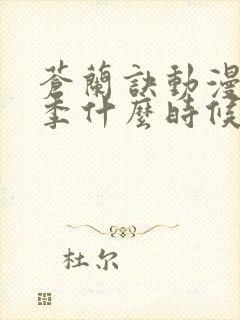 蒼蘭訣動漫
季什麼時候
杜尔